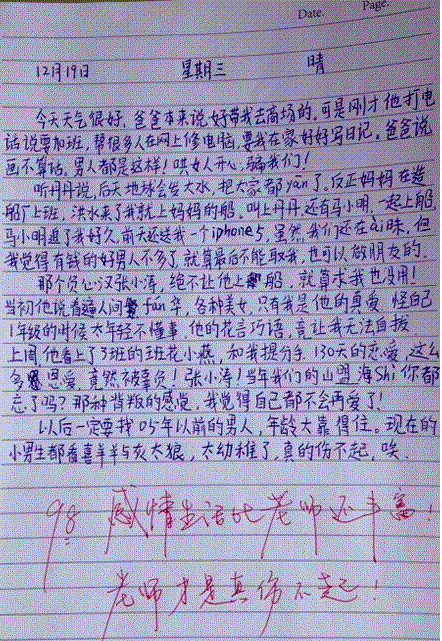 Date. Page.
12月19日 星期三 晴
今天天气很好,爸爸本来说好带我去商场的,可是刚才他打电
话说要加班,帮很多人在网上修电脑,要我在家好好写日记。爸爸说
画不算话。男人都是这样!哄女人开心,骗我们!
听丹丹说,后天地球会发大水,把大家都yān了,反正妈妈在造
船厂上班,洪水来了我就上妈妈的船。叫上丹丹,还有马小明,一起上船,
马小明追了我好久,前天还送我一个iphone5,虽然我们还在ài昧,但
我觉得有钱的好男人不多了,就算最后不能取我,也可以做朋友的。
那个负心汉张小涛,绝不让他上船,就算求我也没用!
当初他说看遍人间fán华,各种美女,只有我是他的真爱,怪自己
1年级的时候太年轻不懂事,他的花言巧语,竟让我无法自拔
上周他看上了3班的班花小燕,和我提分手,130天的恋爱,这么
多恩爱,竟然被辜负!张小涛!当年我们的山盟海Shi你都
忘了吗?那种背叛的感觉,我觉得自己都不会再爱了!
以后一定要找05年以前的男人,年龄大靠得住。现在的
小男生都看喜羊羊与灰太狼,太幼稚了,真的伤不起,唉.
98 感情生活比老师还丰富!
老师才是真伤不起!